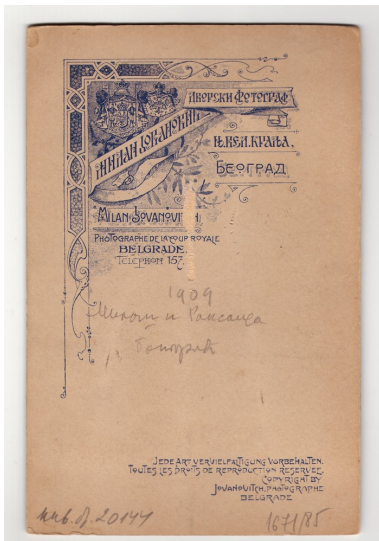 МИЛАН ЈОВАНОВИЋ
ДВОРСКИ ФОТОГРАФ
Њ. ВЕЛ. КРАЉА.
БЕОГРАД
MILAN JOVANOVITCH
PHOTOGRAPHE DE LA COUR ROYALE
BELGRADE.
TELEPHON 157.
1909
Милош и Роксанда
JEDE ART VERVIELFÄLTIGUNG VORBEHALTEN.
TOUTES LES DROITS DE REPRODUCTION RESERVEE.
COPYRIGHT BY
JOVANOVITCH, PHOTOGRAPHE
BELGRADE
инв. бр. 20144
1671/85